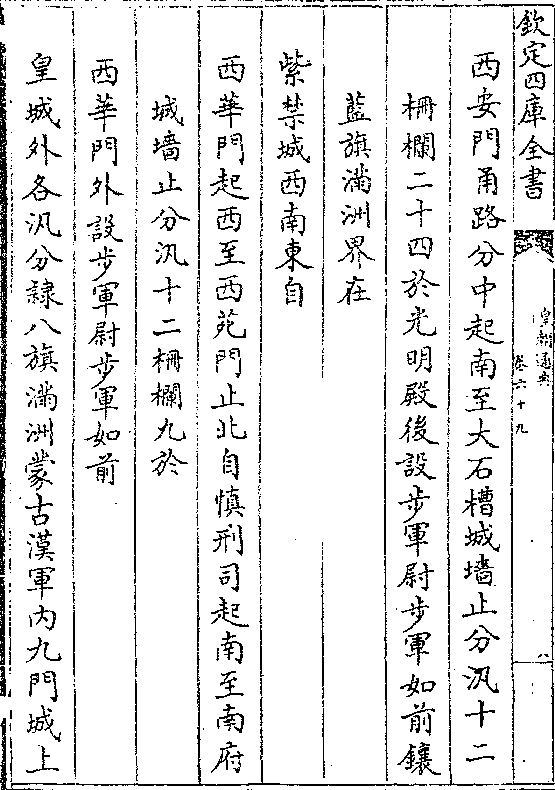 欽定四庫全書
皇朝通典
卷六十九
八
西安門甬路分中起南至大石槽城墻止分汛十二
柵欄二十四於光明殿後設步軍尉步軍如前鑲
藍旗滿洲界在
紫禁城西南東自
西華門起西至西苑門止北自慎刑司起南至南府
城墻止分汛十二柵欄九於
西華門外設步軍尉步軍如前
皇城外各汛分隷八旗滿洲蒙古漢軍内九門城上